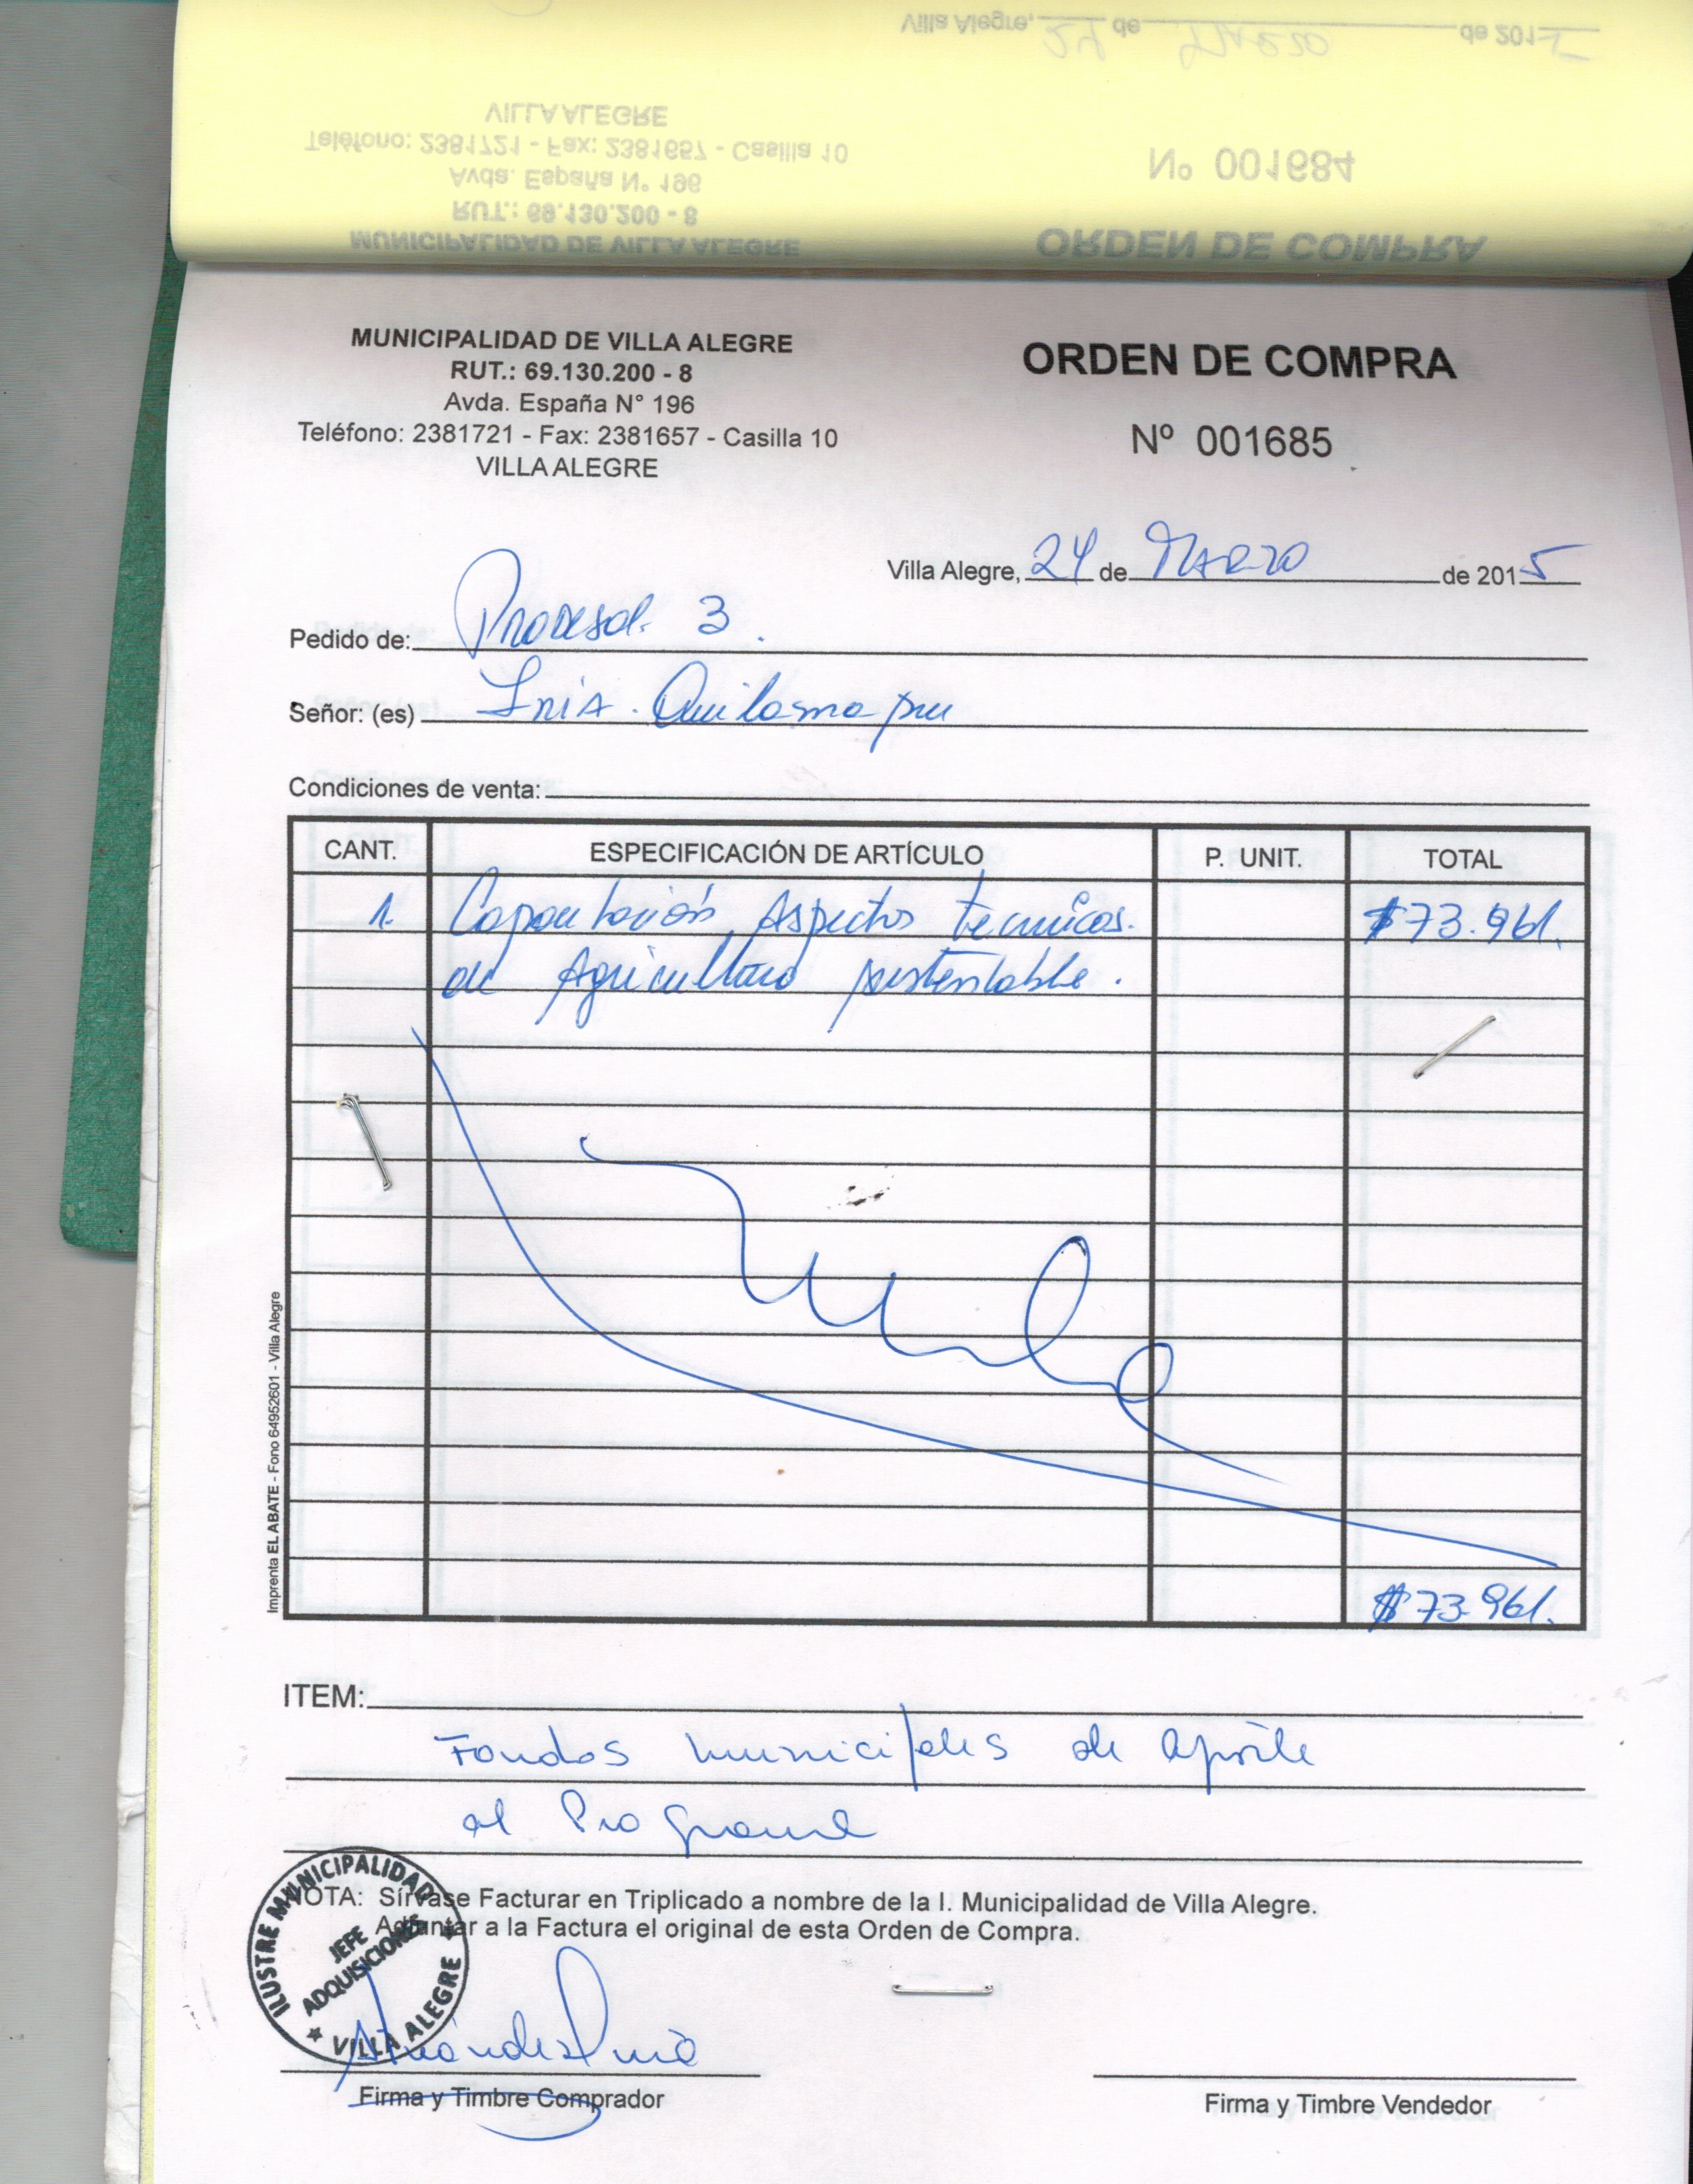 Villa Alegre, 24 de Marzo de 2015
VILLA ALEGRE
Teléfono: 2381721 - Fax: 2381657 - Casilla 10
Nº 001684
Avda. España N° 196
RUT.: 69.130.200 - 8
MUNICIPALIDAD DE VILLA ALEGRE
ORDEN DE COMPRA
MUNICIPALIDAD DE VILLA ALEGRE
RUT.: 69.130.200 - 8
Avda. España N° 196
Teléfono: 2381721 - Fax: 2381657 - Casilla 10
VILLA ALEGRE
ORDEN DE COMPRA
Nº 001685
Villa Alegre, 24 de Marzo de 2015
Pedido de: Prodesal 3.
Señor: (es) Inia. Quilamapu
Condiciones de venta:
CANT. ESPECIFICACIÓN DE ARTÍCULO P. UNIT. TOTAL
1. Capacitación Aspectos tecnicos. $73.961.
de Agricultura sustentable.
$73.961.
Imprenta EL ABATE - Fono 64952601 - Villa Alegre
ITEM:
Fondos municipales de aporte
al Programa
NOTA: Sírvase Facturar en Triplicado a nombre de la I. Municipalidad de Villa Alegre.
Adjuntar a la Factura el original de esta Orden de Compra.
ILUSTRE MUNICIPALIDAD
JEFE
ADQUISICIONES
VILLA ALEGRE
Firma y Timbre Comprador
Firma y Timbre Vendedor